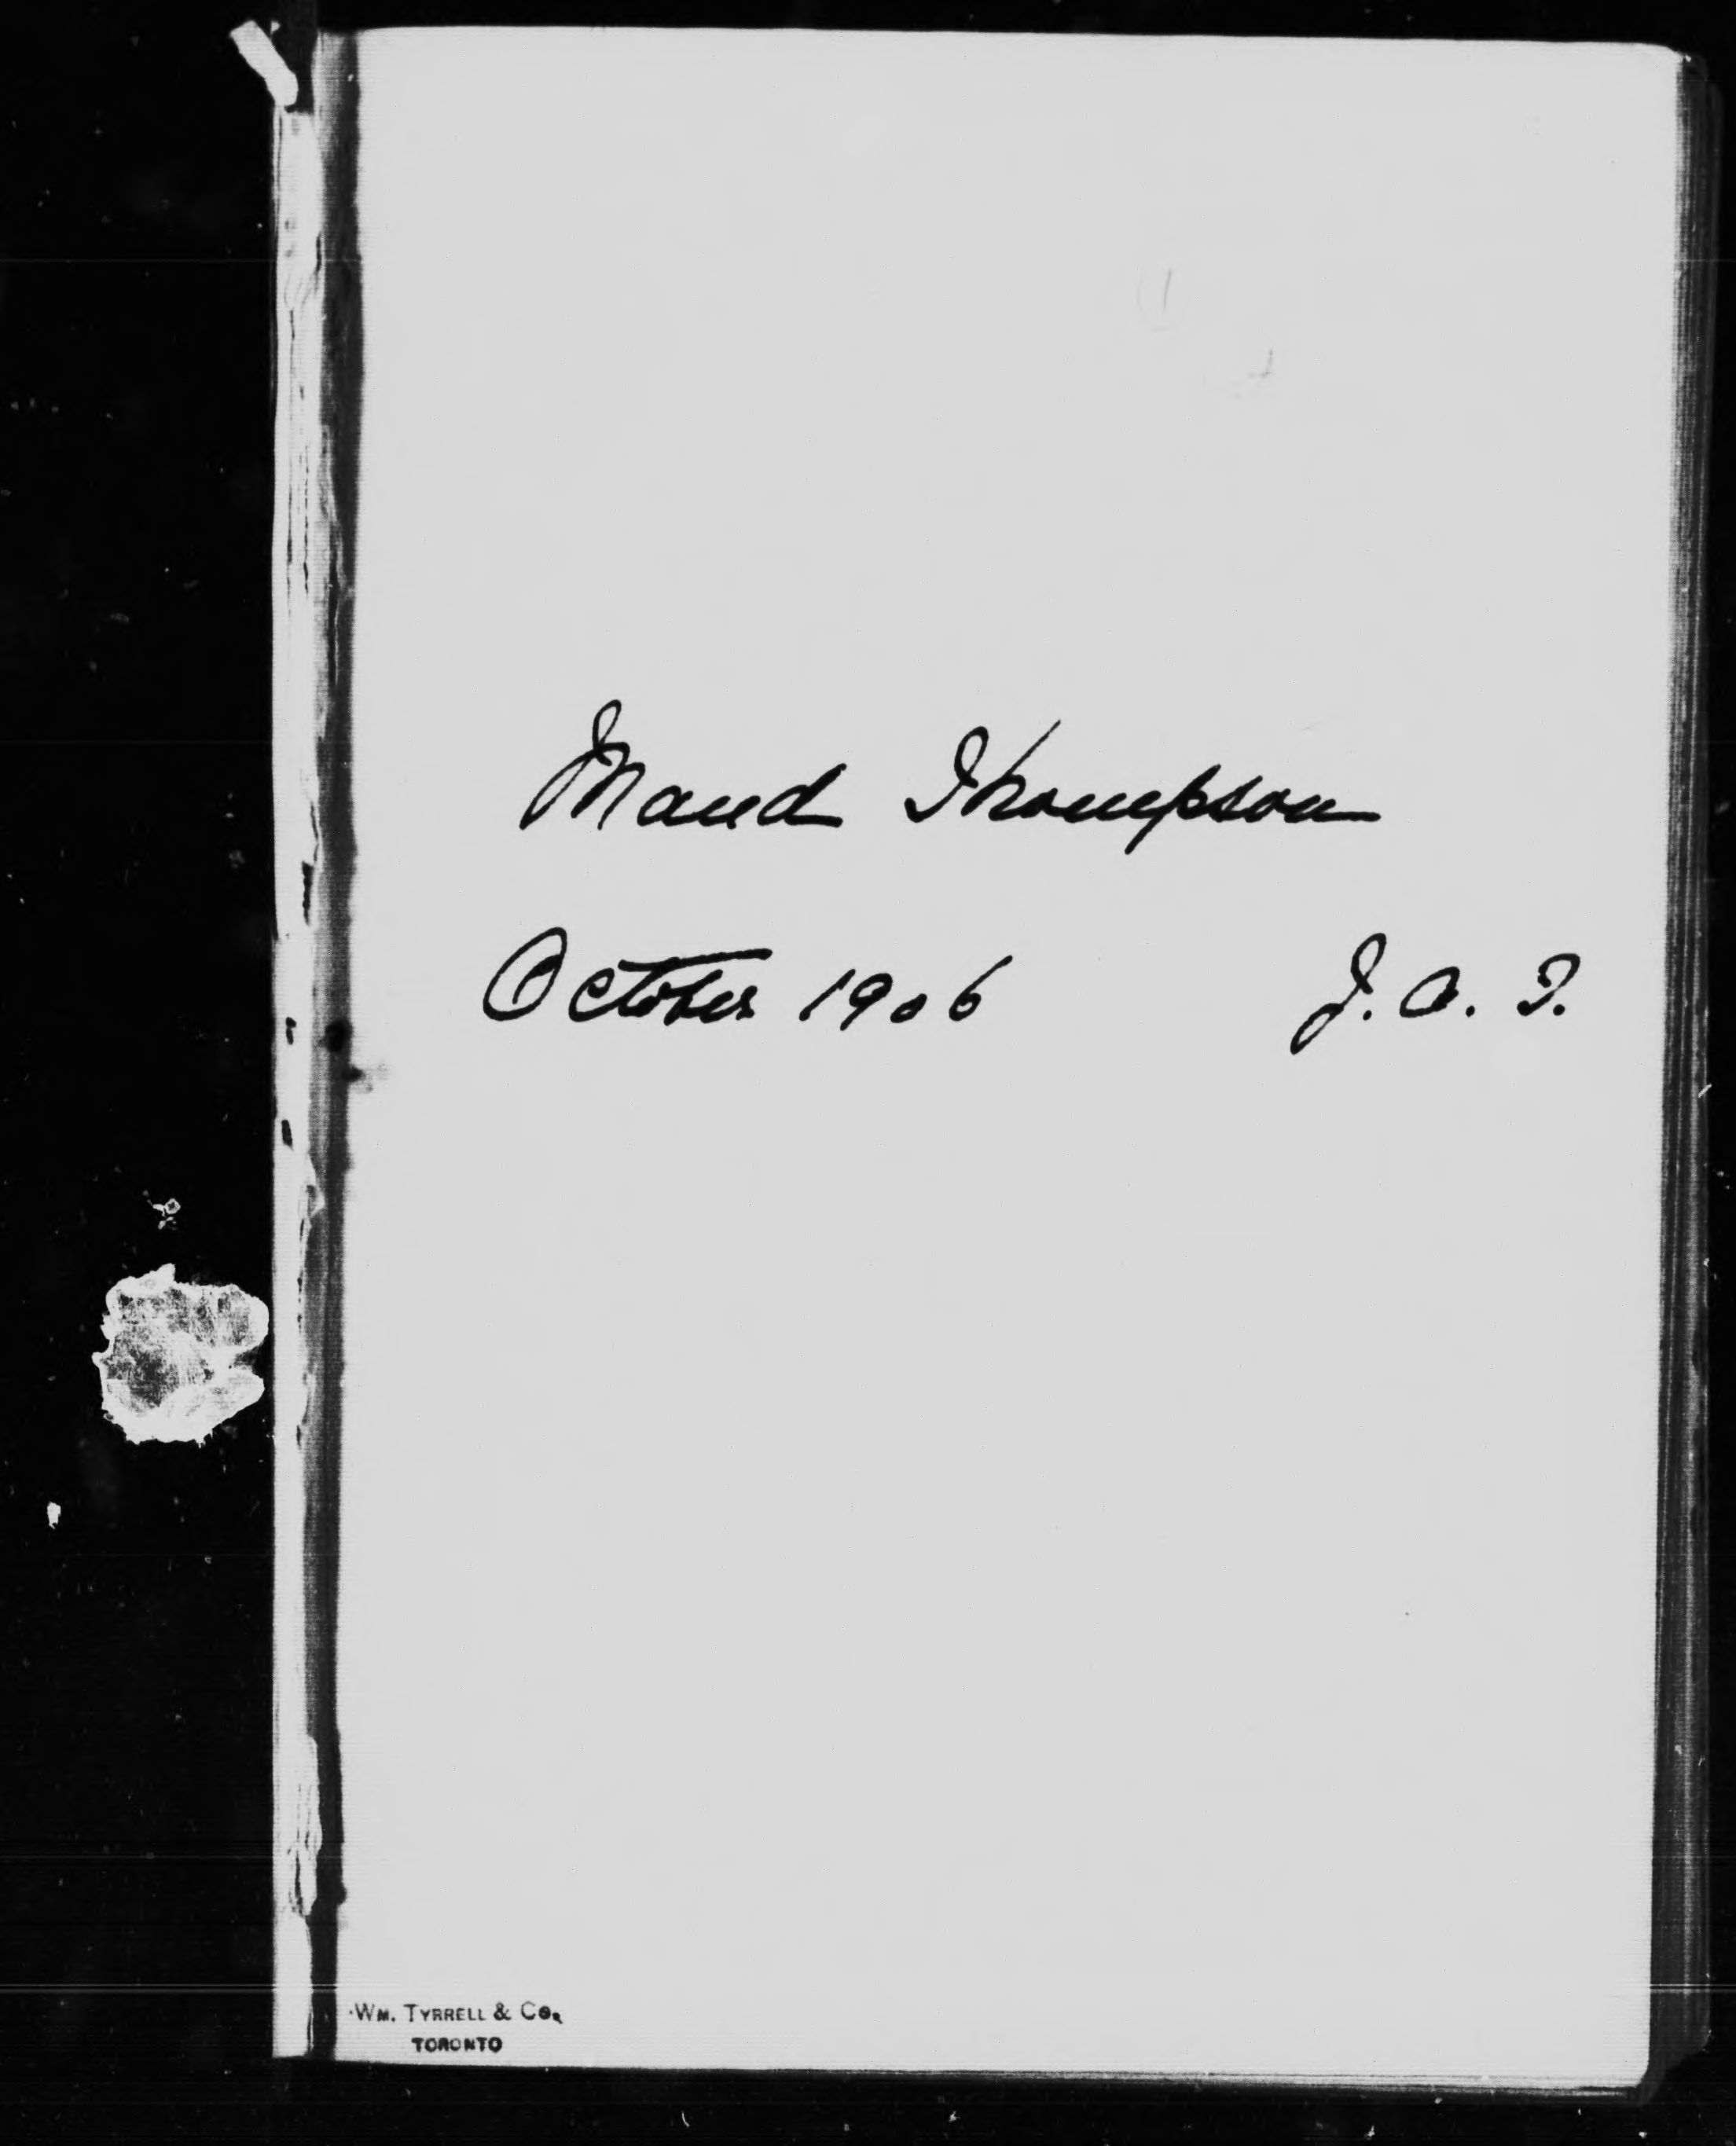 Maud Thompson
October 1906 J. A. T.
Wm. Tyrrell & Co.
TORONTO